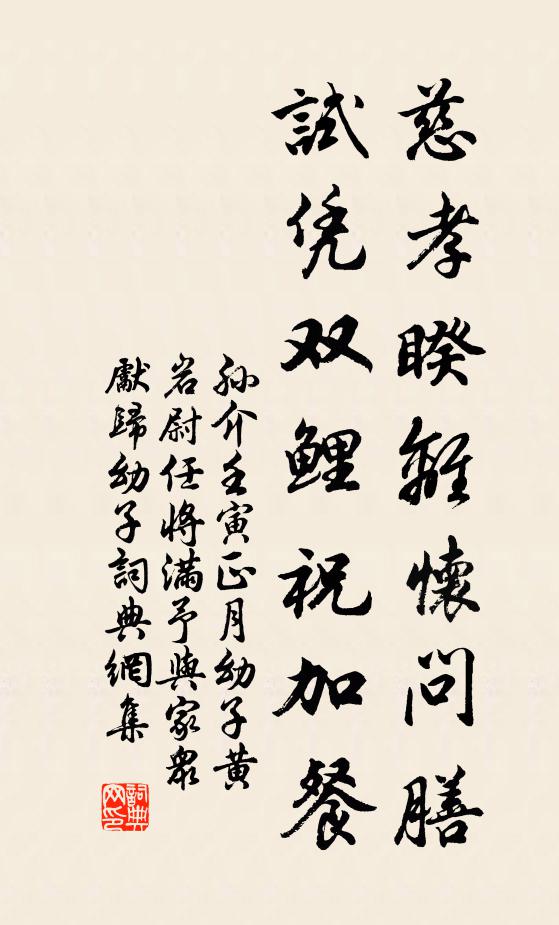 慈孝睽離懷問膳
試凭双鲤祝加餐
孙介壬寅正月幼子黄
岩尉任将满予與家眾
獻歸幼子詞典網集
詞典网印